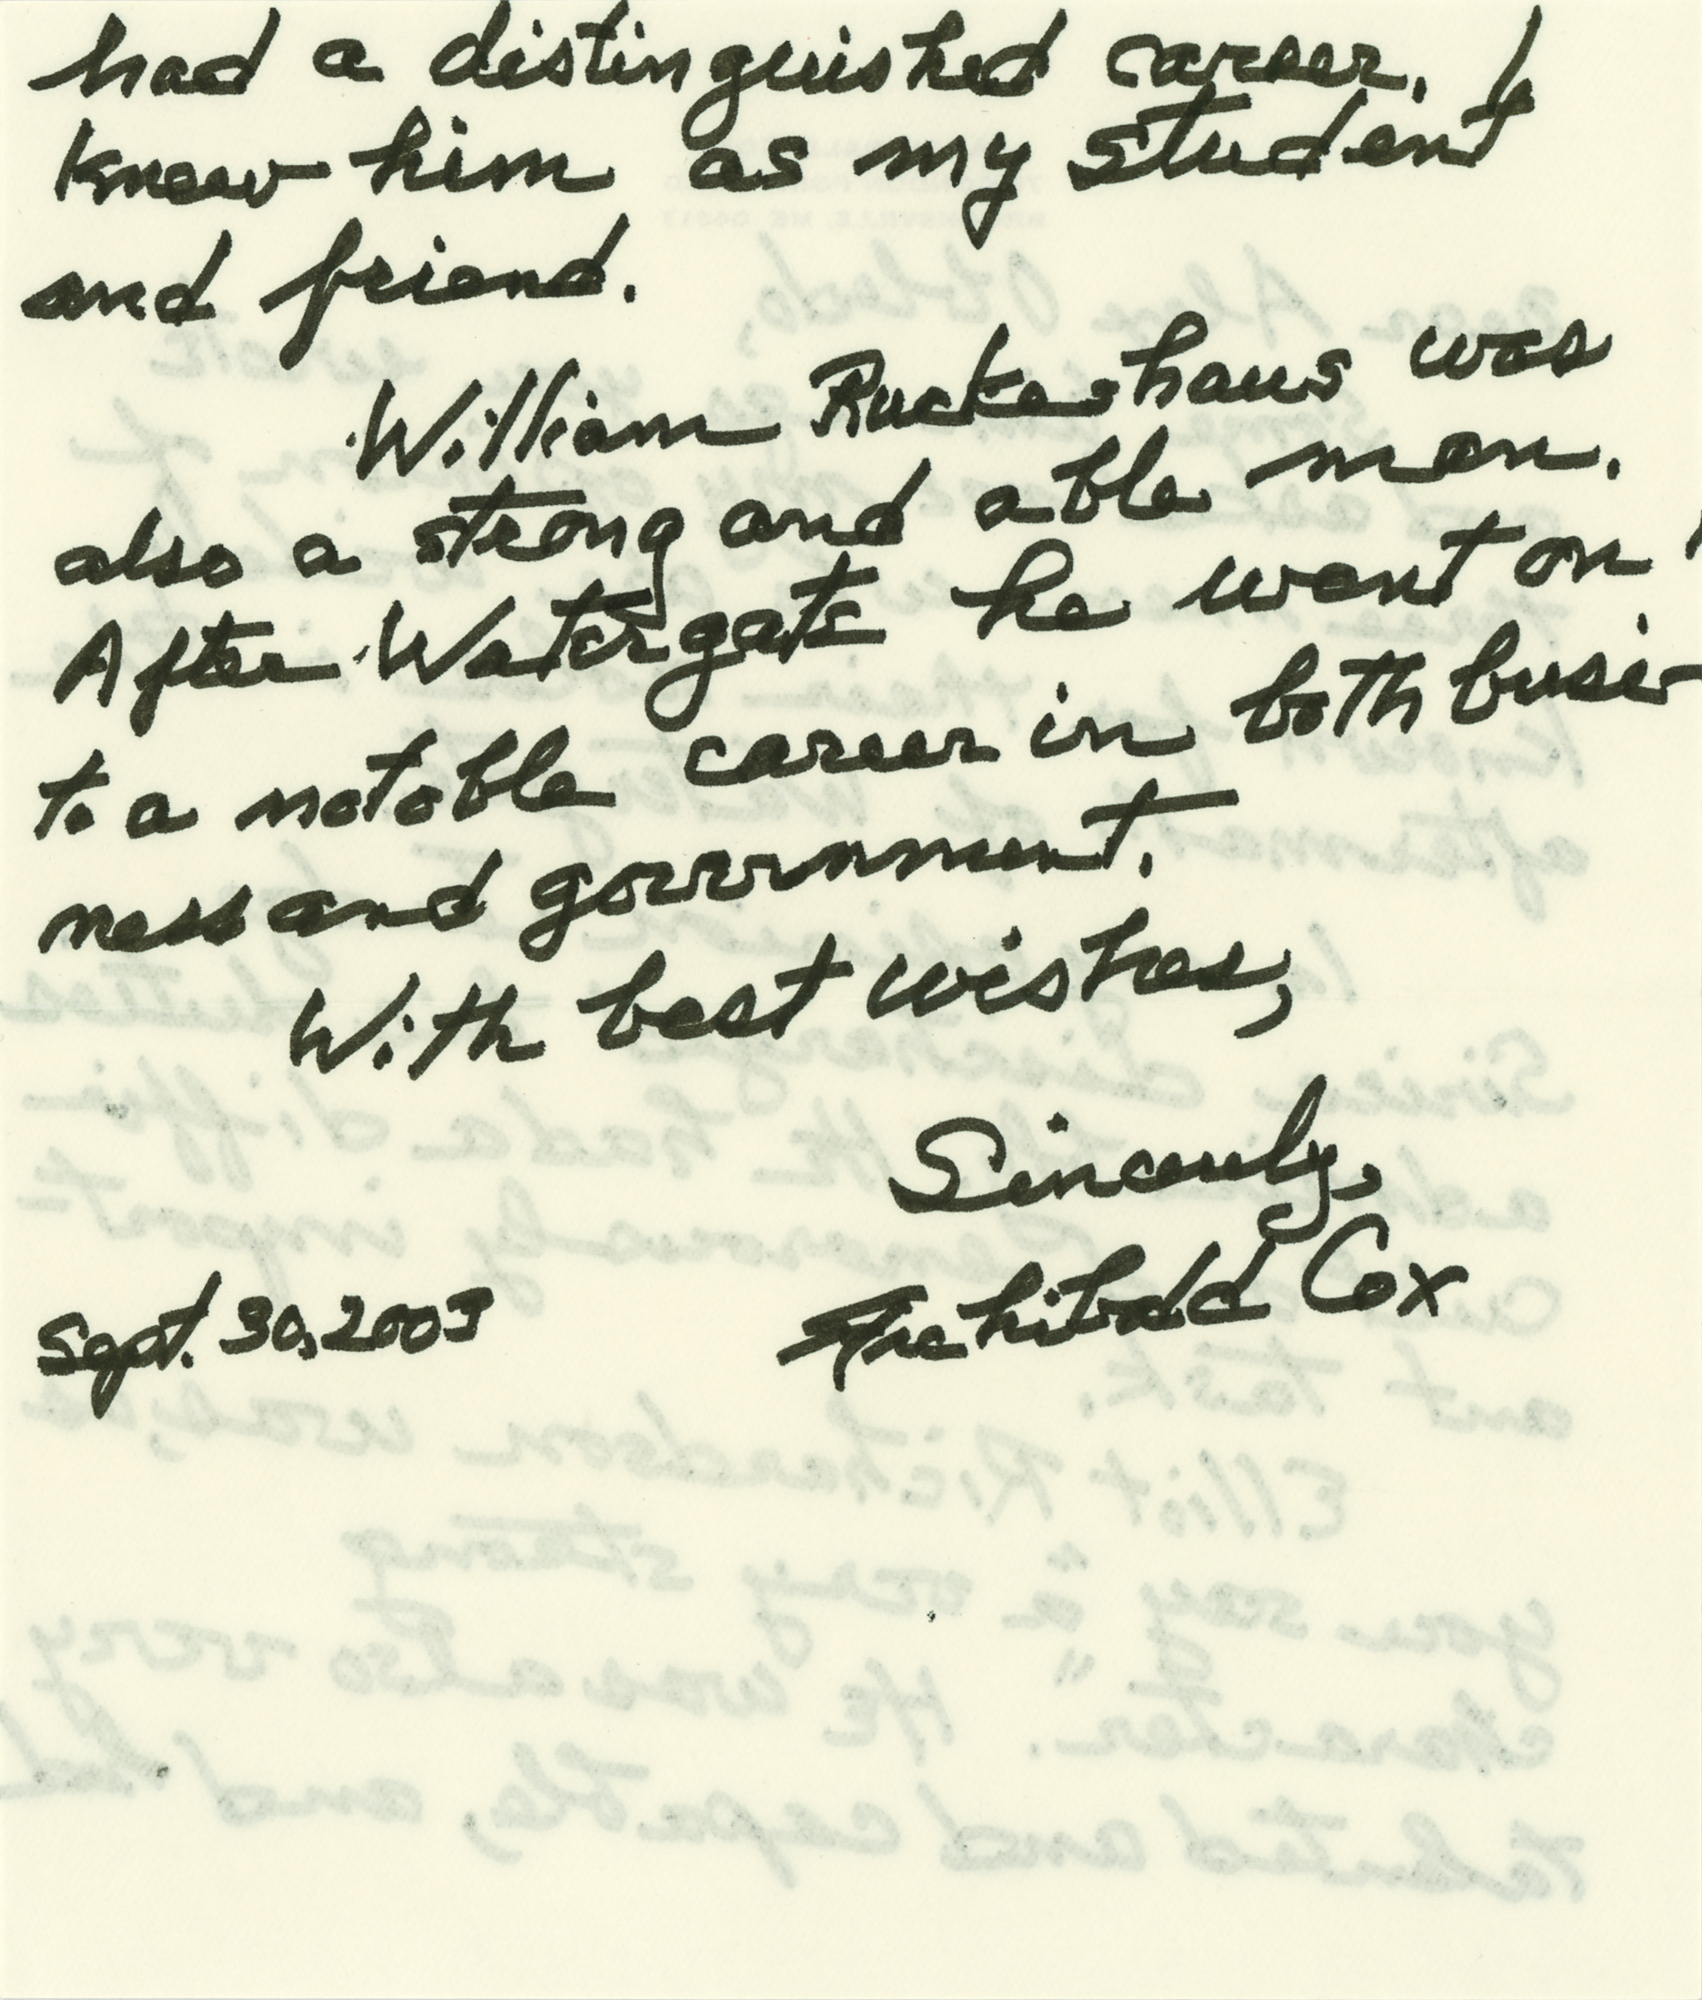 had a distinguished career. I
knew him as my student
and friend.
William Ruckeshaus was
also a strong and able man.
After Watergate he went on
to a notable career in both busi-
ness and government.
With best wishes,
Sincerely,
Archibald Cox
Sept. 30, 2003